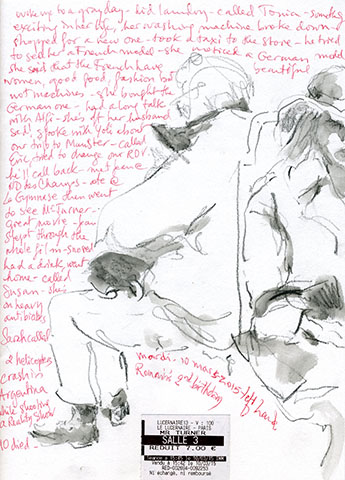 woke up to a gray day - did laundry - called Tonia - something
exciting in her life, her washing machine broke down &
shopped for a new one - took a taxi to the store - he tried
to sell her a French model - she noticed a German model
she said that the French have beautiful
women, good food, fashion but
not machines - she bought the
German one - had a long talk
with Alfi - she's off her husband
sad, spoke with Yoli about
our trip to Munster - called
Eric, tried to change our RDV.
he'll call back - met
des Changes - ate @
Le Gymnase then went
to see Mr Turner -
great movie -
slept through the
whole film - snored
had a drink, went
home - called
Susan - she's
on heavy
antibiotics
Sarah called -
2 helicopters
crash in
Argentina
while shooting
a Reality Show
10 died
mardi, 10 mars 2015 - left hand
2nd birthday
LUCERNAIRE(3) - V : 100
LE LUCERNAIRE - PARIS
MR TURNER
SALLE 3
REDUIT 7.00 €
Séance à 15:45 le 10/03/15
Vendu à 15:42 le 10/03/15
Ni échangé, ni remboursé